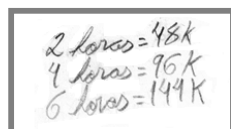 2 horas = 48K
4 horas = 96K
6 horas = 144K